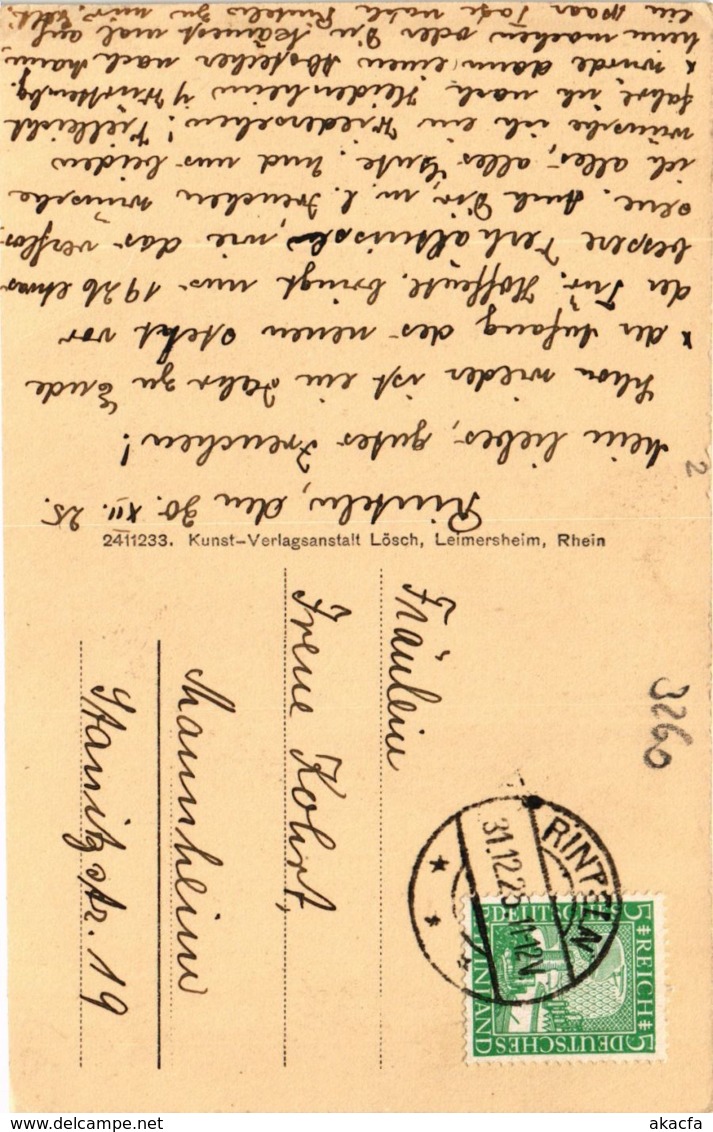 Rinteln, den 30. XII. 25.
Mein liebes, gutes Irenchen!
Schon wieder ist ein Jahr zu Ende
& der Anfang des neuen steht vor
der Tür. Hoffentl. bringt uns 1926 etwas
bessere Verhältnisse, wie das verflos-
sene. Auch Dir, m. l. Irenchen wünsche
ich alles, alles Gute. Und uns beiden
wünsche ich ein Wiedersehen! Vielleicht
fahre ich nach Heidenheim / Württembg.
& würde dann einen Abstecher nach Mann-
heim machen oder Du kämest mal auf
ein paar Tage nach Rinteln zu mir.
2
2411233. Kunst-Verlagsanstalt Lösch, Leimersheim, Rhein
Fräulein
Irene Kohrt,
Mannheim
Stamitzstr. 19
3260
RINTELN
31.12.25. 11-12V
5 REICH 5
DEUTSCHES
RHEINLAND
akpool
www.delcampe.net
akacfa